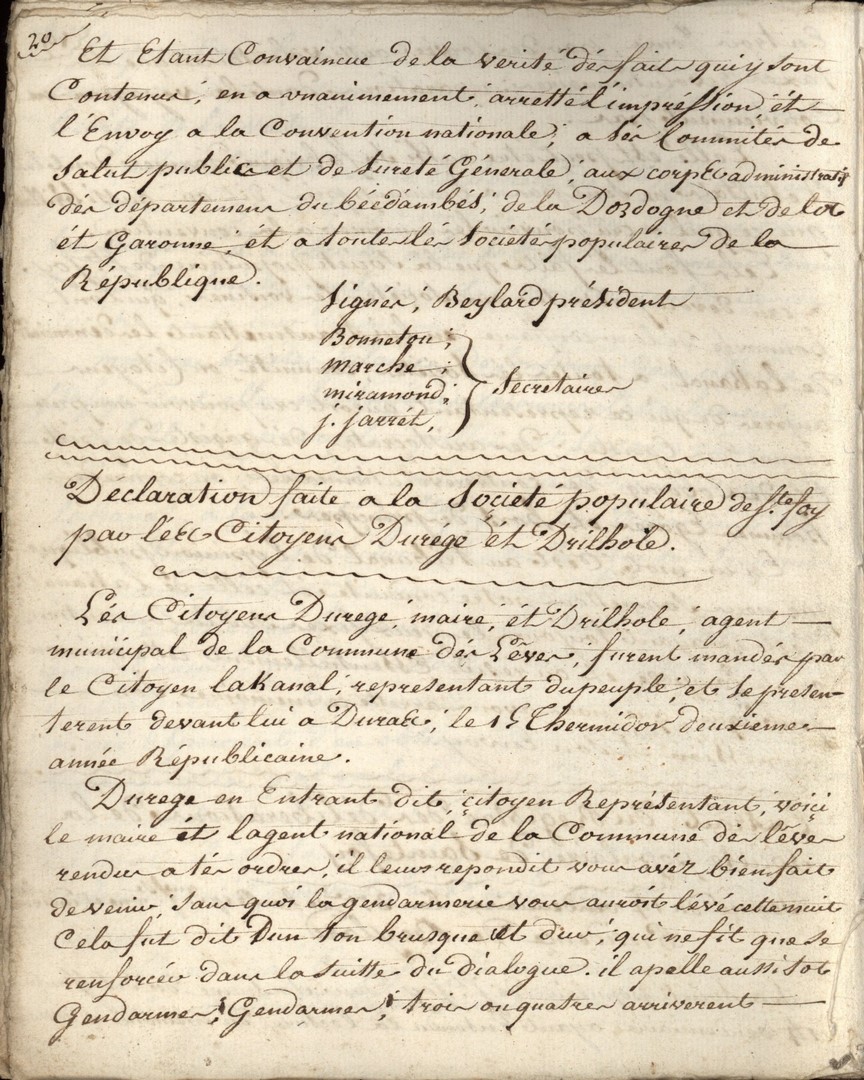 20
Et Etant Convaincue de la verité dés faits qui y sont
Contenus, en a unanimement arretté l'impréssion, ét
l'Envoy a la Convention nationale, a sés Commités de
Salut public et de sureté Générale, aux corps administratifs
dés départemens du béc d'ambés, de la Dordogne et de lot
ét Garonne, ét a toutes lés sociétés populaires de la
République.
Signés, Beylard président
Bonneton,
marche,
miramond,
j. jarrét,
Secretaires
Déclaration faite a la Société populaire de Ste foy
par lés Citoyens Durége ét Drilhole.
Lés Citoyens Durege, maire, ét Drilhole, agent
municipal de la Commune dés Lêves, furent mandés par
le Citoyen laKanal, representant du peuple, et se presen-
terent devant lui a Duras, le 15 Thermidor deuxieme
année Républicaine.
Durege en Entrant dit, citoyen Représentant, voici
le maire ét l'agent national de la Commune dés lêves
rendus a tés ordres, il leurs repondit vous avéz bien fait
de venir, sans quoi la gendarmerie vous auroit lévé cette nuit
Cela fut dit D'un ton brusque et dur, qui ne fit que se
renforcér dans la suitte du dialogue. il apelle aussitot
Gendarmes, Gendarmes, trois ou quatres arriverent